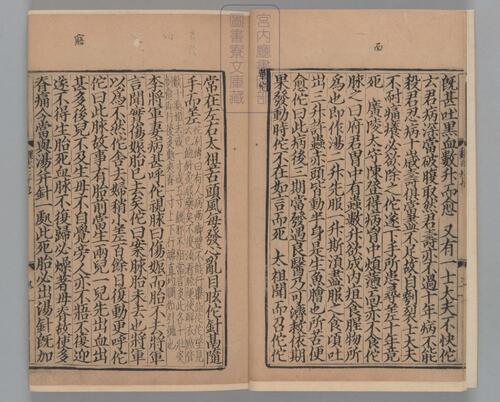 既甚吐黑血數升而愈 又有一士大夫不快佗
云君病深當破腹取然君壽亦不過十年病不能
殺君忍病十歲壽俱當盡不足故自刳裂士大夫
不耐痛癢必欲除之佗遂下手所患尋差十年竟
死 廣陵太守陳登得病胸中煩懣面赤不食佗
脈之曰府君胃中有蟲數升欲成內疽食腥物所
為也即作湯二升先服一升斯須盡服之食頃吐
出三升許蟲赤頭皆動半身是生魚膾也所苦便
愈佗曰此病後三期當發遇良醫乃可濟救依期
果發動時佗不在如言而死 太祖聞而召佗佗
常在左右太祖苦頭風每發心亂目眩佗針鬲隨
手而差
李將軍妻病甚呼佗視脈曰傷娠而胎不去將軍
言聞實傷娠胎已去矣佗曰案脈胎未去也將軍
以為不然佗舍去婦稍小差百餘日復動更呼佗
佗曰此脈故事有胎前當生兩兒一兒先出血出
甚多後兒不及生母不自覺旁人亦不寤不復迎
遂不得生胎死血脈不復歸必燥著母脊故使多
脊痛今當與湯并針一處此死胎必出湯針既加
宮內廳書陵部
圖書寮文庫藏